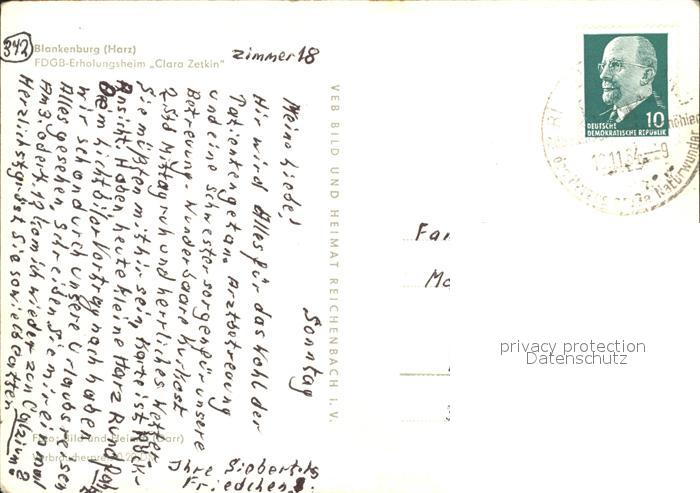 342
Blankenburg (Harz)
FDGB-Erholungsheim „Clara Zetkin"
Zimmer 18
Sonntag
Meine Liebe!
Hir wird Alles für das Wohl der
Patienten getan. Arztbetreuung
und eine Schwester sorgen für unsere
Betreuung. Wunderbaare Kurkost
2 Std Mittagruh und herrliches Wetter
Sie müßten mit hir sein, Karte ist Rück-
Ansicht Haben heute kleine Harz Rundfahrt
Dem Lichtbilor Vortrag nach haben
wir schon durch unsere Urlaubsreisen
Alles gesehen. Schreiben Sie mir einmal
Am 3. oder 4. 12 kom ich wieder zur
Herzlichst grüst Sie sowie
Ihre Sieberts
Friedchen
VEB BILD UND HEIMAT REICHENBACH I. V.
Foto: Bild und Heimat (Darr)
Verbraucherpreis
10
DEUTSCHE
DEMOKRATISCHE REPUBLIK
11.64 — 9
Naturwunder
Fa
Mo
privacy protection
Datenschutz